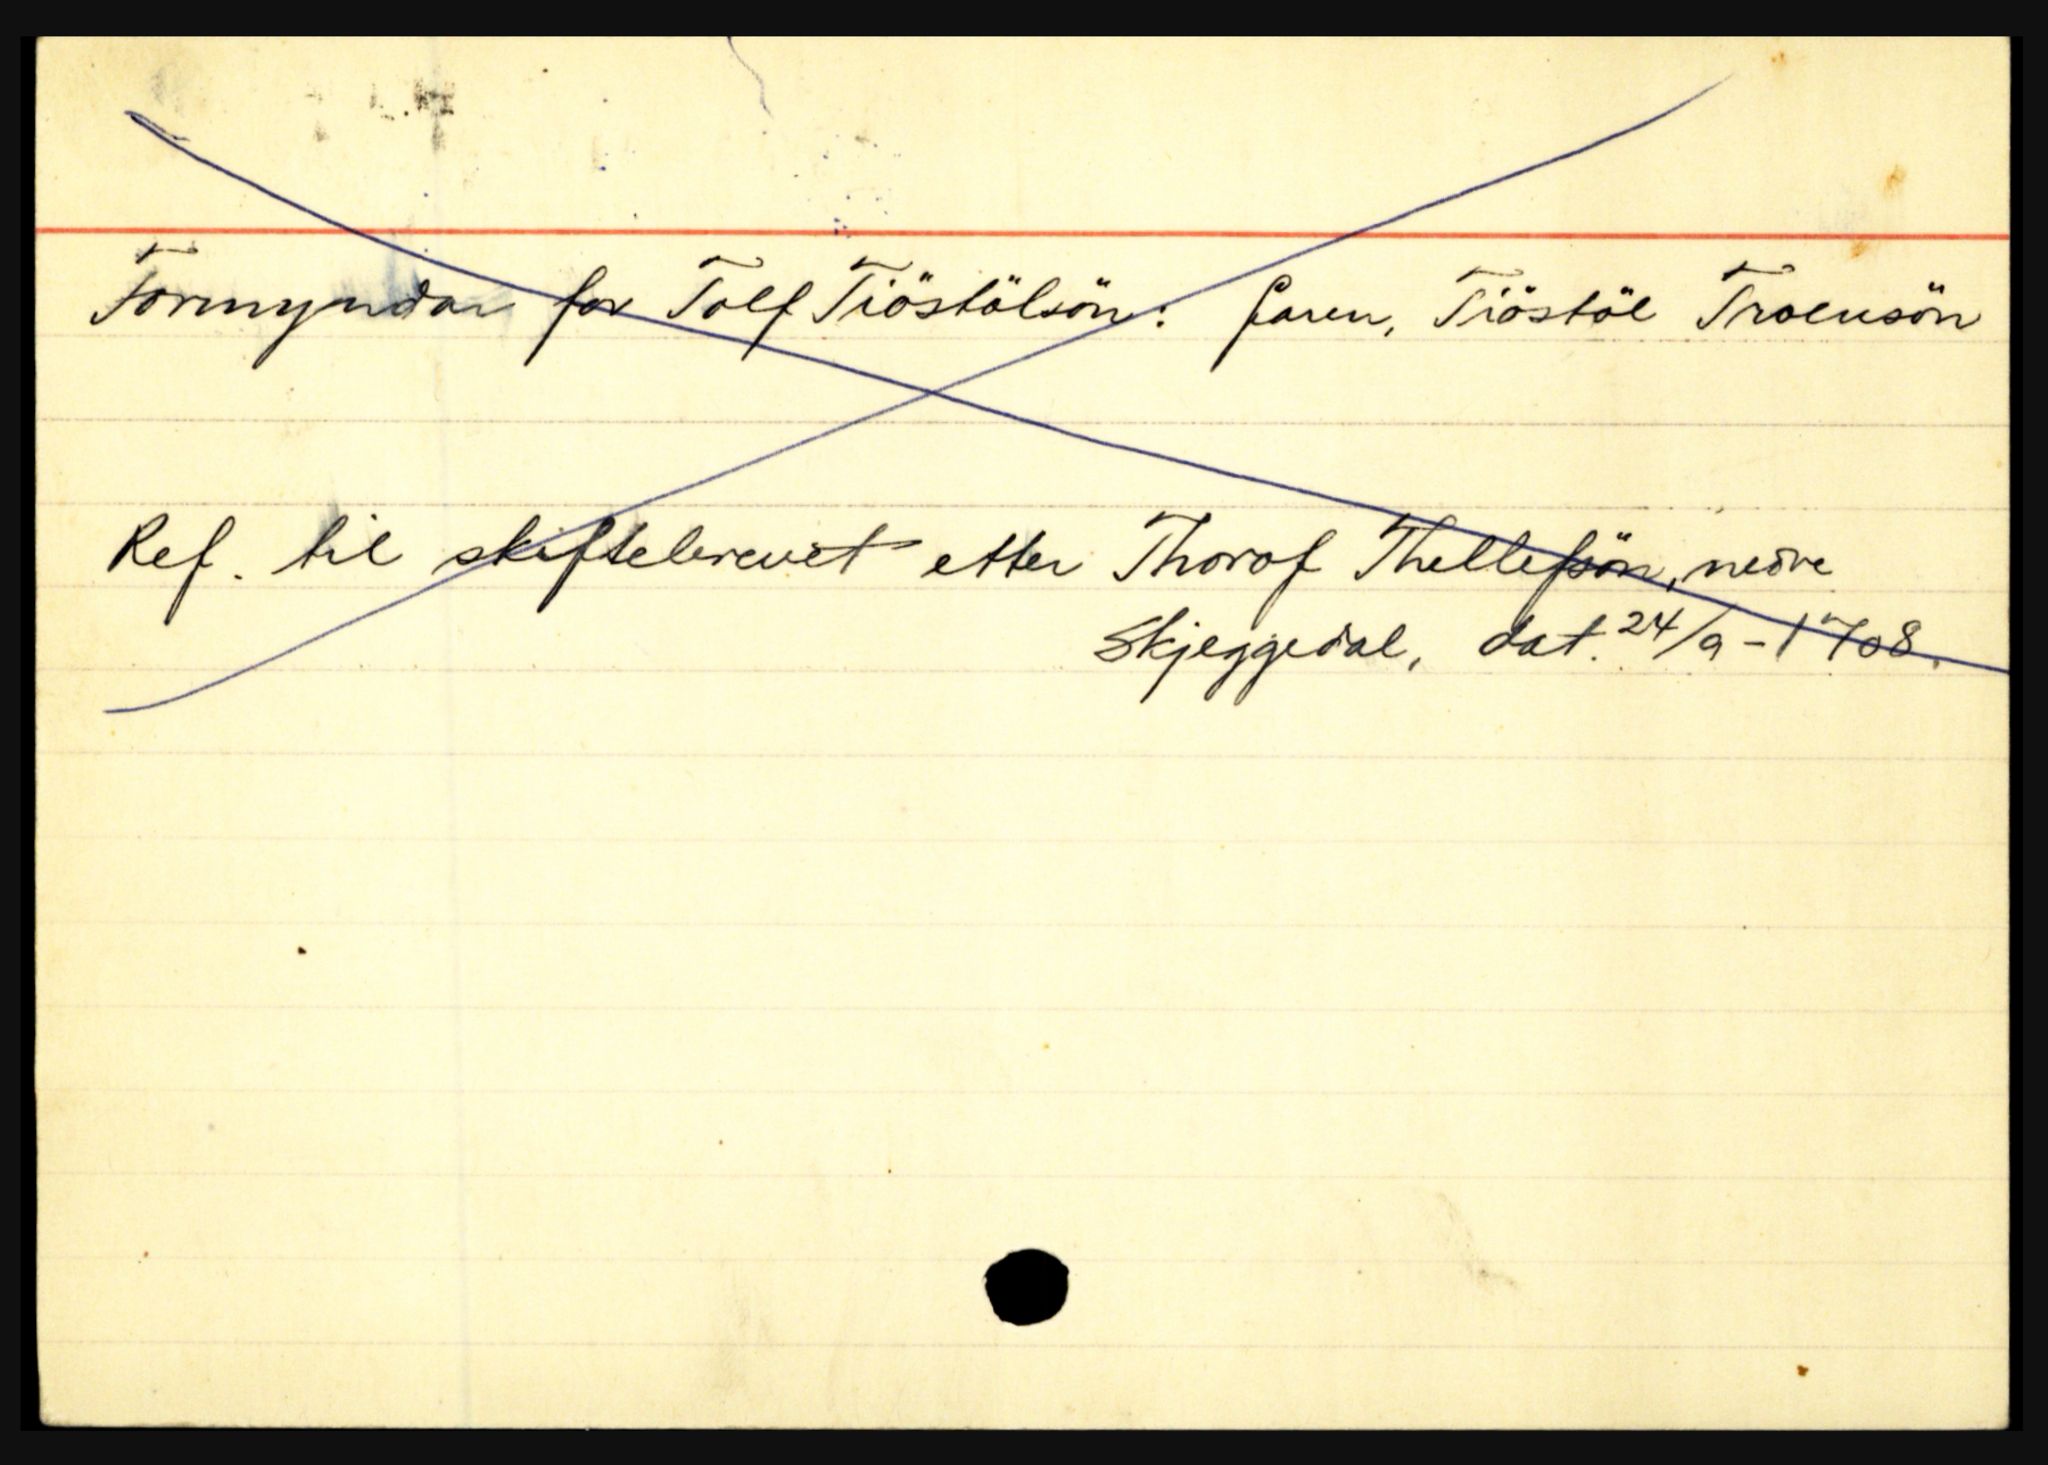 Formyndar for Tolf Tiöstölsön: faren, Tiöstöl Troensön
Ref. til skiftebrevet etter Thorof Thellefsön, nedre
Skjeggedal, dat. 24/9 - 1708.